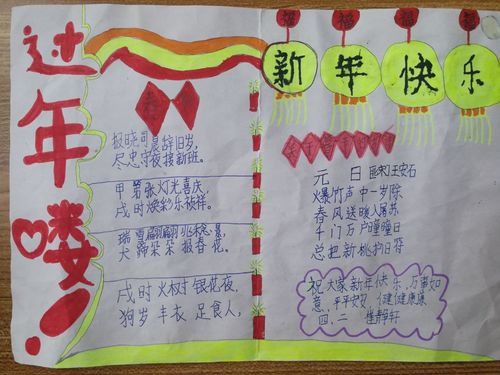 过年喽!
福 福 福
新年快乐
春
报晓司晨辞旧岁,
尽忠守夜接新班。
甲第张灯光喜庆,
戌时焕彩乐祯祥。
瑞雪翩翩兆
犬蹄朵朵报春花。
戌时火树银花夜,
狗岁丰衣足食人,
元日 宋 王安石
爆竹声中一岁除
春风送暖入屠苏
千门万户瞳瞳日
总把新桃换旧符
祝大家新年快乐,万事如
意,平平安安,健健康康
四、二